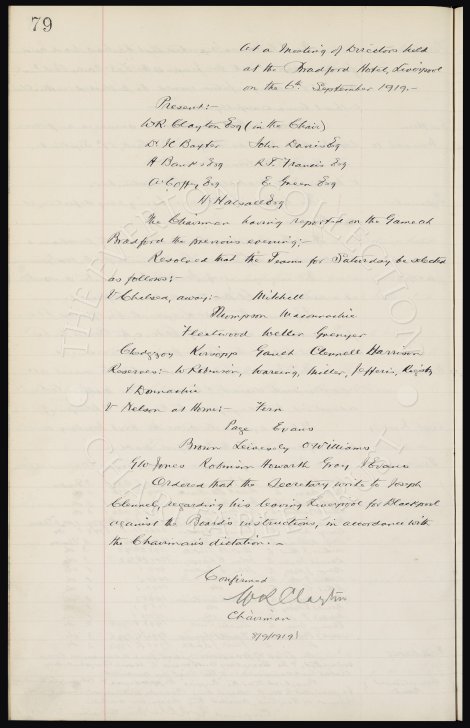 79
At a Meeting of Directors held
at the Bradford Hotel, Liverpool
on the 6th September 1919.-
Present:-
W.R. Clayton Esq (in the Chair)
Dr J C Baxter John Davies Esq
A Banks Esq R.T. Francis Esq
A Coffey Esq E Green Esq
H Halsall Esq
The Chairman having reported on the Game at
Bradford the previous evening:-
Resolved that the Teams for Saturday be selected
as follows:-
V Chelsea, away:- Mitchell
Thompson Maconnachie
Fleetwood Weller Grenyer
Chedgzoy Kirsopp Gault Clennell Harrison
Reserves:- W Robinson, Wareing, Miller, Jefferis, Rigsby
& Donnachie
V Nelson at Home:- Fern
Page Evans
Brown Leivesley O Williams
G W Jones Robinson Howarth Gray J Evans
Ordered that the Secretary write to Joseph
Clennell, regarding his leaving Liverpool for Blackpool
against the Board's instructions, in accordance with
the Chairman's dictation.-
Confirmed
W R Clayton
Chairman
8/9/1919
THE EVERTON COLLECTION